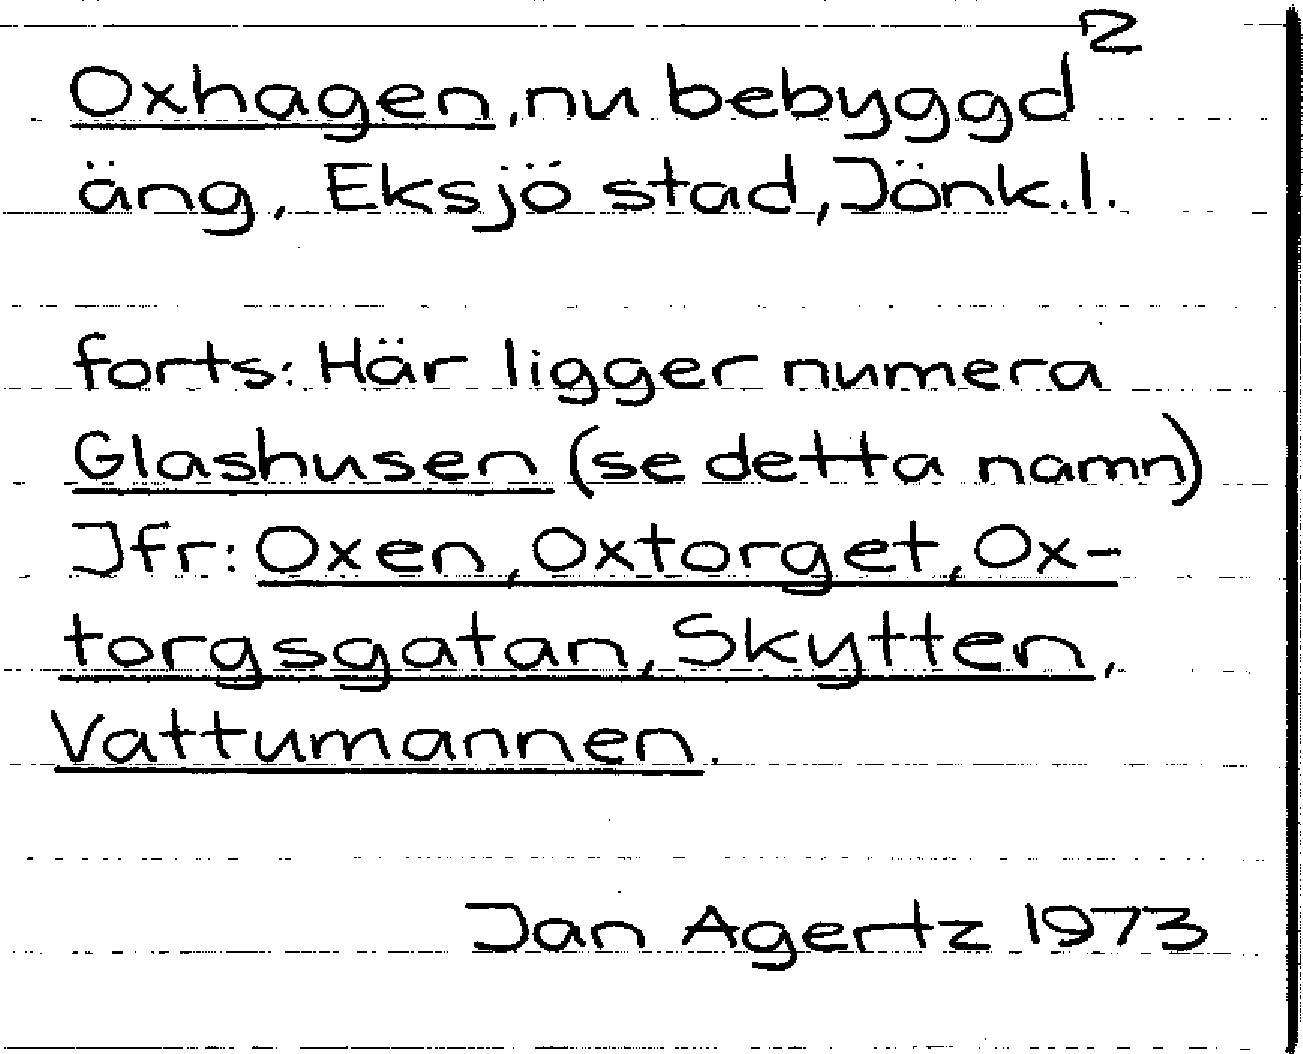 2
Oxhagen, nu bebyggd
äng, Eksjö stad, Jönk.l.
forts: Här ligger numera
Glashusen (se detta namn)
Jfr: Oxen, Oxtorget, Ox-
torgsgatan, Skytten,
Vattumannen.
Jan Agertz 1973